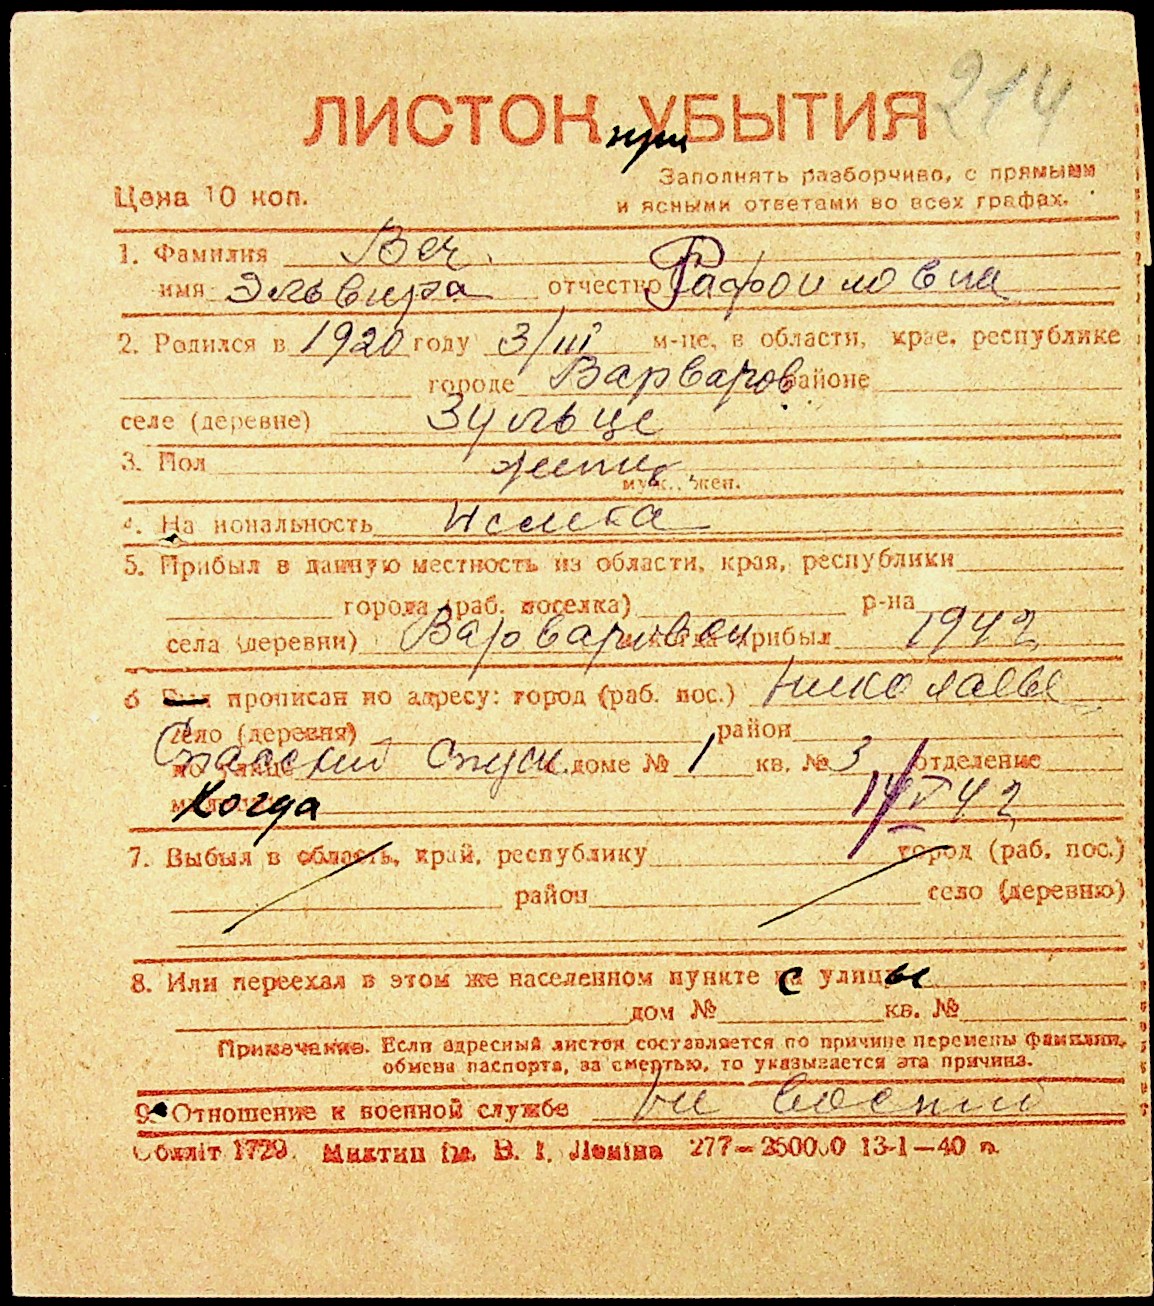 214
ЛИСТОК при УБЫТИЯ
Цена 10 коп.
Заполнять разборчиво, с прямыми
и ясными ответами во всех графах.
1. Фамилия Веч
имя Эльвира отчество Рафоиловна
2. Родился в 1920 году 3/III м-це, в области, крае, республике
городе Варваров районе
селе (деревне) Зульце
3. Пол женщ
муж., жен.
4. Национальность Немка
5. Прибыл в данную местность из области, края, республики
города (раб. поселка) р-на
села (деревни) Варваровки и когда прибыл 1942
6 Был прописан по адресу: город (раб. пос.) Николаевы
село (деревня) район
по улице Спасский спуск в доме № 1 кв. № 3 отделение
Когда 14/V 42
7. Выбыл в область, край, республику город (раб. пос.)
район село (деревню)
8. Или переехал в этом же населенном пункте с улицы
дом № кв. №
Примечание. Если адресный листок составляется по причине перемены фамилии,
обмена паспорта, за смертью, то указывается эта причина.
9. Отношение к военной службе не военно
Обліт 1729. Миктип ім. В. І. Леніна 277—350000 13-1—40 п.